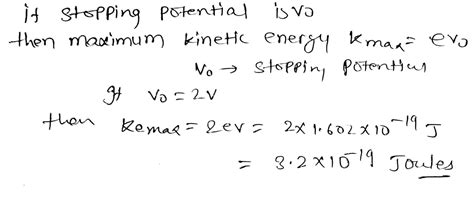 if stopping potential is V0
then maximum kinetic energy Kmax = eV0
V0 → stopping potential
If V0 = 2V
then Kemax = 2ev = 2×1.602×10⁻¹⁹ J
= 3.2×10⁻¹⁹ Joules